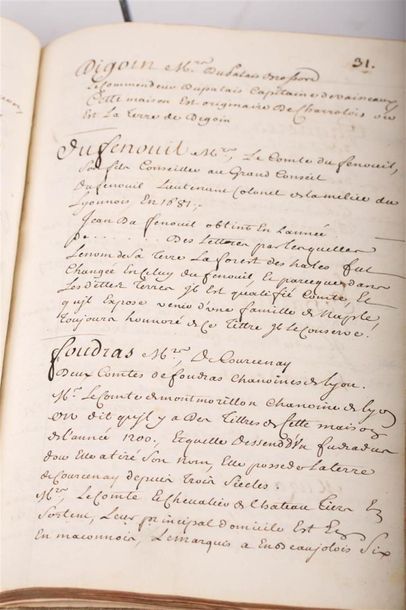 31.
Digoin Mrs Du Palais
Le Commendeur Dupalais Capitaine de vaisseaux
Cette maison Est originaire De Charrolois ou
Est La Terre de Digoin
Du fenouil Mrs, Le Comte du fenouil,
Son fils Conseiller au Grand Conseil
Du fenouil Lieutenent Colonel de la milice du
Lyonnois, En 1681;
Jean Du fenouil obtint En Lannée
De ........ Des Lettres par lesquelles
Lenom de sa Terre La forest des hales fut
Changée En Celuy du fenouil, Et parceque dans
Les dittes Terres Il Est qualifié Comte, Et
qu'il Expose venir d'une famille de Naple
Toujours honoré de Ce Tittre Il le Conserve!
foudras Mrs De Courcenay
Deux Comtes de foudras Chanoines de Lyon.
Mr Le Comte de montmorillon Chanoine de Lyon
On dit qu'il y a Des Tittres de Cette maison
de l'année 1200. Et quelle Dessend D'un
dou Elle a tiré Son Nom, Elle possede La terre
de Courcenay depuis Trois Siecles
Mrs Le Comte & Chevallier de Chateau Tiers En
Sortent, Leur principal domicile Est En
En maconnois, Le marquis a En Beaujolois Six